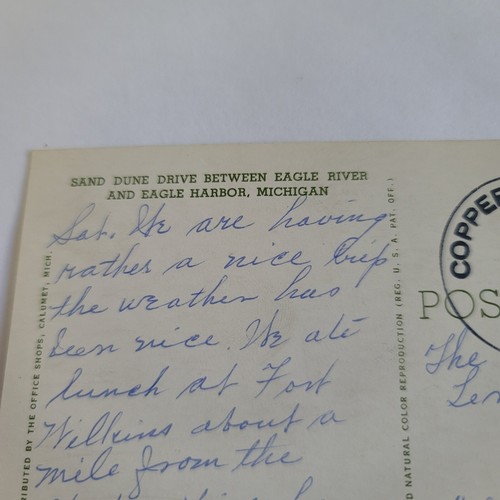 SAND DUNE DRIVE BETWEEN EAGLE RIVER
AND EAGLE HARBOR, MICHIGAN
Sat. We are having
rather a nice trip
the weather has
been nice. We ate
lunch at Fort
Wilkins about a
mile from the
IBUTED BY THE OFFICE SHOPS, CALUMET, MICH.
D NATURAL COLOR REPRODUCTION (REG. U. S. A. PAT. OFF.)
COPPER
POS
The